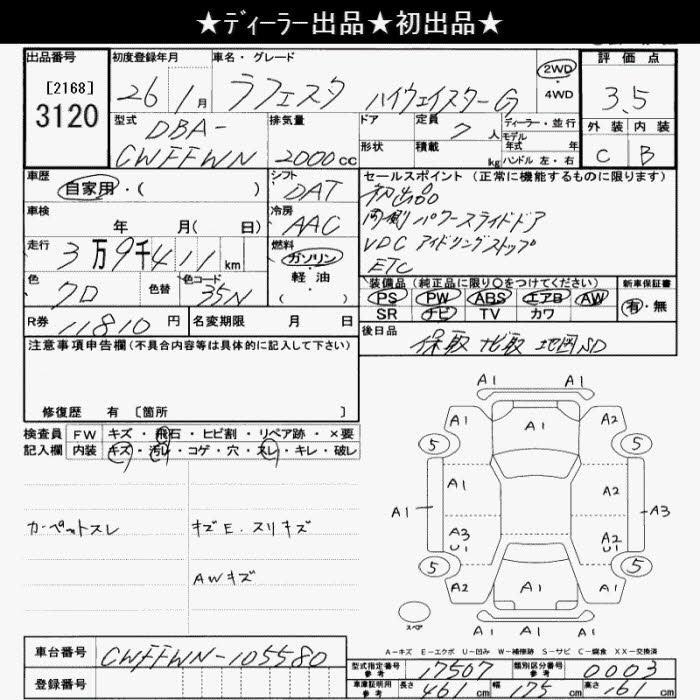 ★ディーラー出品★初出品★
出品番号 初度登録年月 車名・グレード 評価点
[2168]
3120
26 1月 ラフェスタ ハイウェイスターG
2WD
4WD
3.5
型式 DBA-
CWFFWN
排気量
2000cc
ドア
形状
定員 7人
積載 kg
ディーラー・並行
モデル
年式 年
ハンドル 左・右
外装 内装
C B
車歴
自家用・( )
シフト
DAT
セールスポイント (正常に機能するものに限ります)
初出品
両側パワースライドドア
VDC アイドリングストップ
ETC
車検
年 月( 日)
冷房
AAC
走行 3万9千411km
燃料
ガソリン
・
軽油
( )
色 クロ 色替 色コード 35N
装備品 (純正品に限り○をつけてください) 新車保証書
PS PW ABS エアB AW
SR ナビ TV カワ
有・無
R券 11810円 名変期限 月 日
後日品 保取 ナビ取 地図SD
注意事項申告欄(不具合内容等は具体的に記入して下さい)
修復歴 有 [箇所 ]
検査員 FW キズ・飛石・ヒビ割・リペア跡・×要
記入欄 内装 キズ・汚レ・コゲ・穴・スレ・キレ・破レ
カーペットスレ
キズE.スリキズ
AWキズ
A1
A1 A1 A2
5 5
A1 A2
A1 A3
A3 A2
U1 U1
5 5
A2 A1 A2
A1 A1 A1
スペア
A-キズ E-エクボ U-凹み W-補修跡 S-サビ C-腐食 XX-交換済
車台番号 CWFFWN-105580
登録番号
型式指定番号
参考
17507
類別区分番号
参考
0003
車庫証明用
参考
長さ 461cm 幅 175cm 高さ 161cm